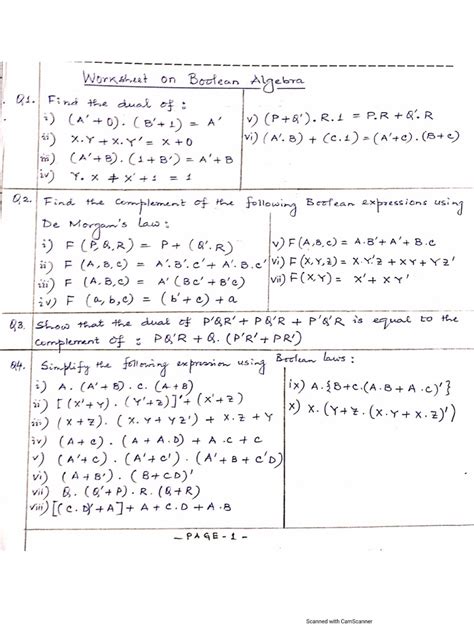 Worksheet on Boolean Algebra
Q1. Find the dual of :
i) (A'+0). (B'+1) = A'
ii) X.Y + X.Y' = X+0
iii) (A'+B). (1+B') = A'+B
iv) Y.X + X'+1 = 1
v) (P+Q'). R.1 = P.R + Q'.R
vi) (A'.B) + (C.1) = (A'+C). (B+C)
Q2. Find the complement of the following Boolean expressions using
De Morgan's law :
i) F(P,Q,R) = P + (Q'.R)
ii) F(A,B,C) = A'.B'.C' + A'.B.C'
iii) F(A,B,C) = A'(BC'+B'C)
iv) F(a,b,c) = (b'+c) + a
v) F(A,B,C) = A.B' + A' + B.C
vi) F(X,Y,Z) = X.Y'Z + XY + YZ'
vii) F(X,Y) = X' + XY'
Q3. Show that the dual of P'QR' + PQR' + P'Q'R is equal to the
complement of : PQ'R + Q.(P'R'+PR')
Q4. Simplify the following expression using Boolean laws :
i) A. (A'+B). C. (A+B)
ii) [(X'+Y). (Y'+Z)]' + (X'+Z)
iii) (X+Z). (X.Y+YZ') + X.Z + Y
iv) (A+C). (A+A.D) + A.C + C
v) (A'+C). (A'+C'). (A'+B+C'D)
vi) (A+B'). (B+CD)'
vii) Q. (Q'+P). R. (Q+R)
viii) [(C.D)'+A] + A + C.D + A.B
ix) A.{B+C.(A.B+A.C)'}
x) X.(Y+Z.(X.Y+X.Z)')
- PAGE - 1 -
Scanned with CamScanner